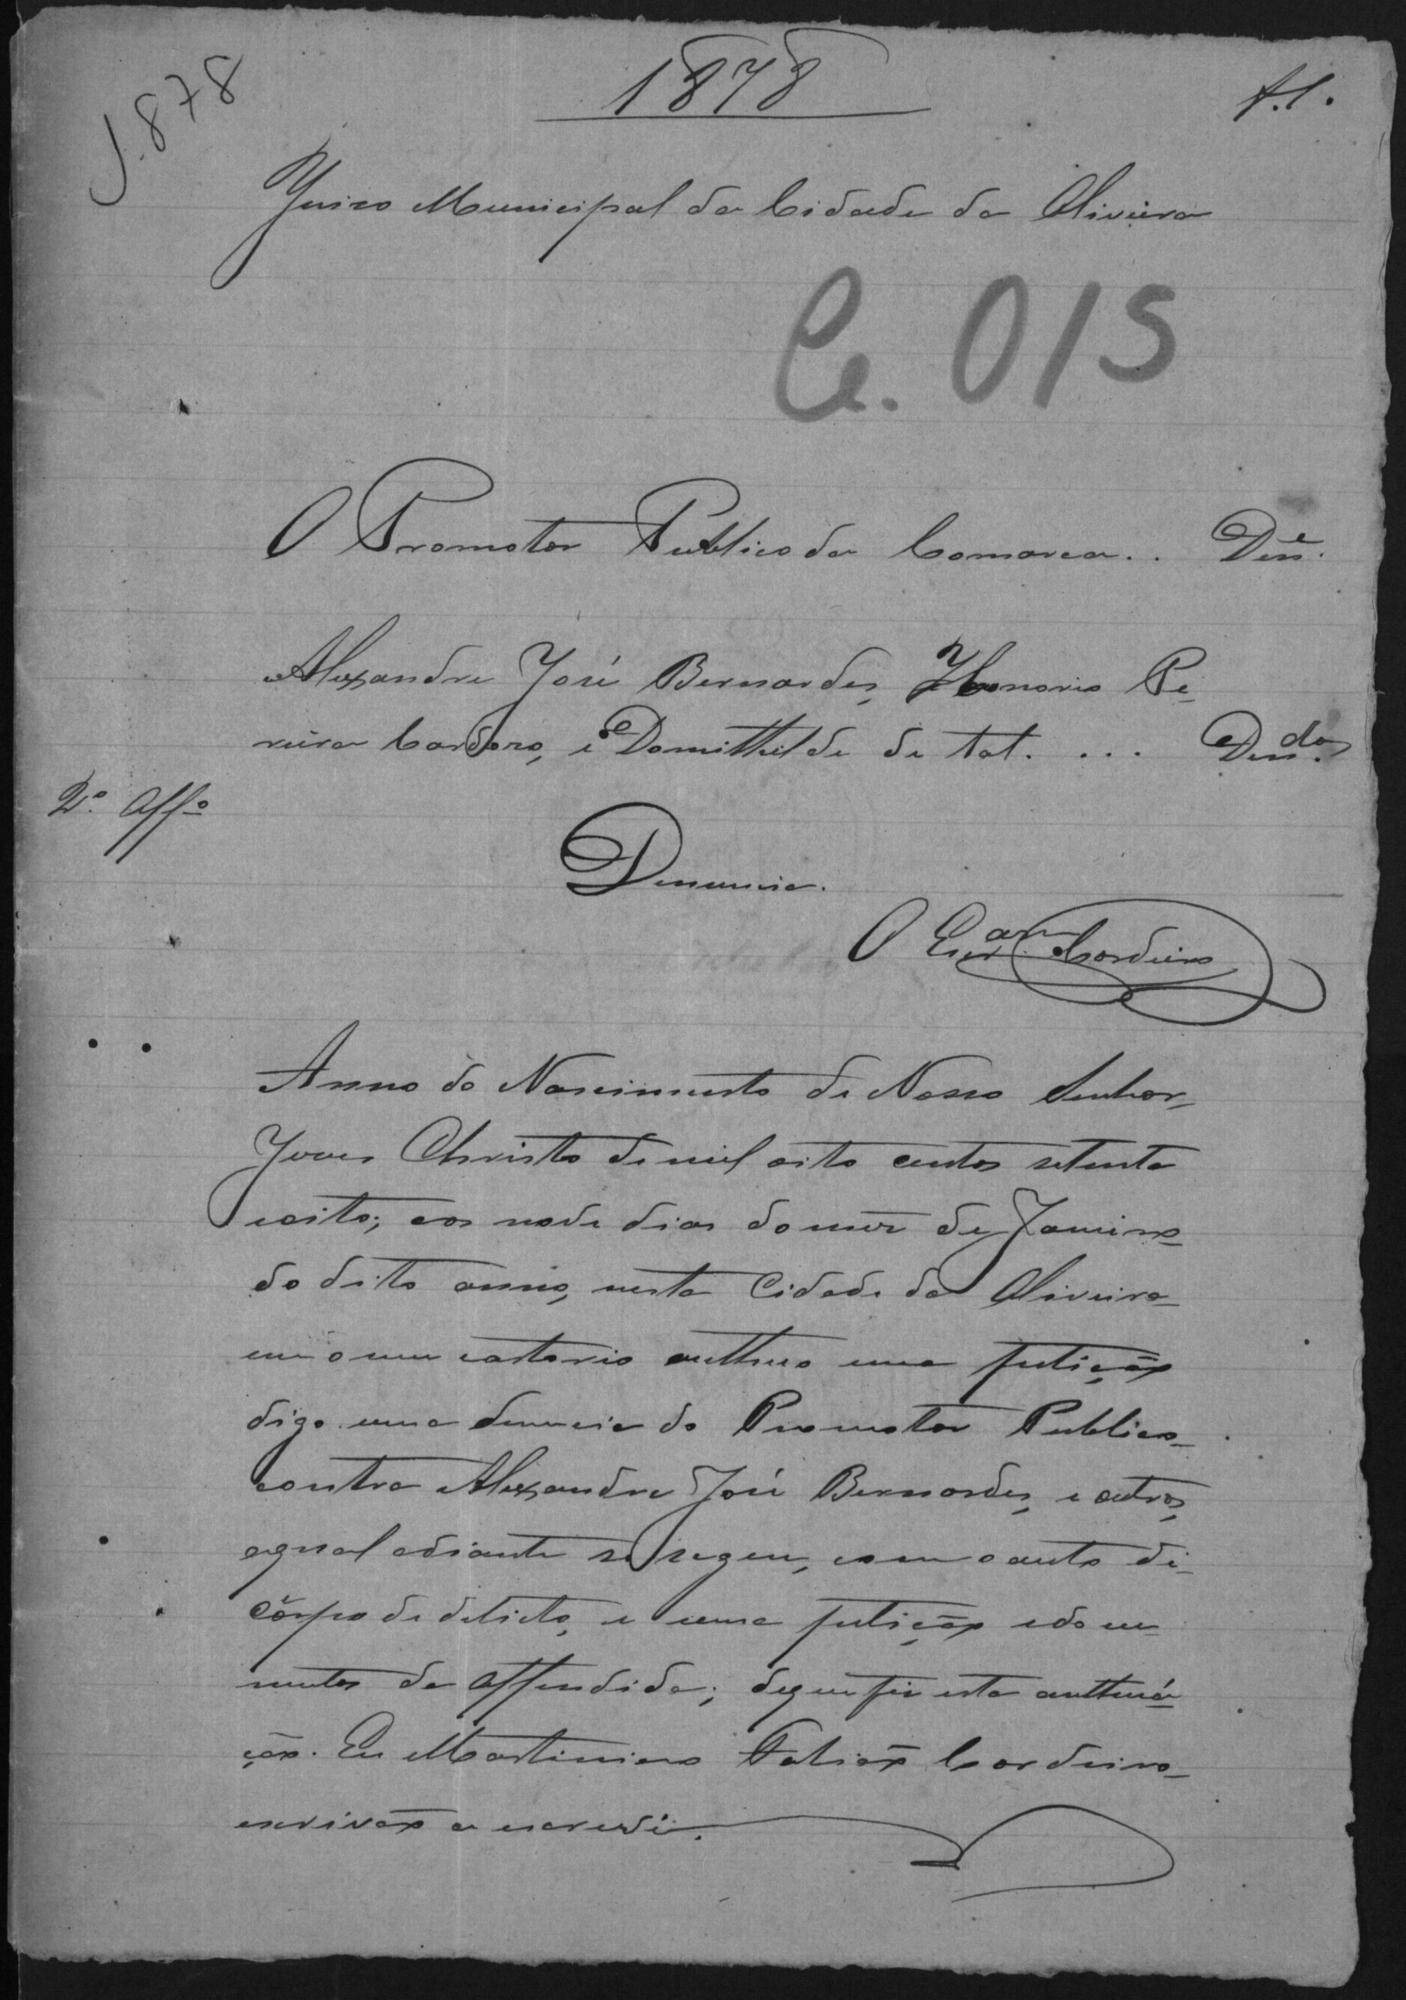 1878
J.878
f.1.
Juizo Municipal da Cidade da Oliveira
C. 015
O Promotor Publico da Comarca.. Den.e
Alexandre José Bernardes, Honorio Pe-
reira Cardozo, e Domithilde de tal. ... Den.dos
2º Aff.º
Denuncia.
O Escr.am Cordeiro
Anno do Nascimento de Nosso Senhor
Jezus Christo de mil oito centos setenta
e oito; aos nove dias do mez de Janeiro
do dito anno, nesta Cidade da Oliveira
em o meu cartorio authuo uma petição
digo uma denuncia do Promotor Publico
contra Alexandre José Bernardes, e outros,
a qual adiante se segue, com o auto de
côrpo de delicto, e uma petição e docu-
mentos da offendida; de que fiz esta authua-
ção. Eu Martiniano Cordeiro
escrivão a escrevi.